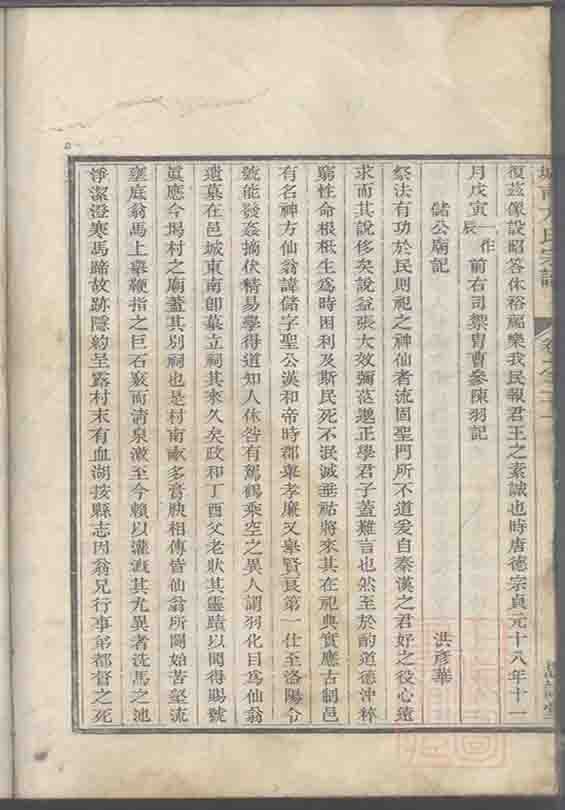 城南方氏宗譜
復茲像設昭答休裕福樂我民報君王之素誠也時唐德宗貞元十八年十一
月戊寅一作辰前右司禦胄曹參陳羽記
儲公廟記
洪彥華
祭法有功於民則祀之神仙者流固聖門所不道爰自秦漢之君好之役心遠
求而其說侈矣說益張大效彌茫邈正學君子蓋難言也然至於酌道德沖粹
窮性命根柢生爲時困利及斯民死不泯滅垂祐將來其在祀典實應古制邑
有名神方仙翁諱儲字聖公漢和帝時郡舉孝廉又舉賢良第一仕至洛陽令
號能發姦摘伏精易學得道知人休咎有駕鶴乘空之異人謂羽化目爲仙翁
遺墓在邑城東南卽墓立祠其來久矣政和丁酉父老狀其靈蹟以聞得賜號
眞應今場村之廟蓋其別祠也是村南畝多膏腴相傳皆仙翁所闢始苦壑流
壅底翁馬上舉鞭指之巨石裂而淸泉潄至今賴以灌漑其尤異者洗馬之池
淨潔澄寒馬蹄故跡隱約呈露村末有血湖按縣志因翁兄行事弟都督之死